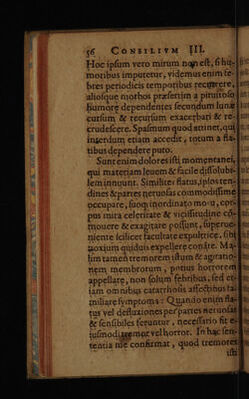 56 CONSILIVM III.
Hoc ipsum vero mirum non est, si hu-
moribus imputetur, videmus enim fe-
bres periodicis temporibus recurrere,
aliosque morbos præsertim à pituitoso
humore dependentes secundum lunæ
cursum & recursum exacerbari & re-
crudescere. Spasmum quod attinet, qui
interdum etiam accedit, totum a fla-
tibus dependere puto.
Sunt enim dolores isti momentanei,
qui materiam levem & facile dissolubi-
lem innuunt. Similiter flatus, ipsos ten-
dines & partes nervosas commodissime
occupare, suoq; inordinato motu, cor-
pus mira celeritate & vicissitudine com-
movere & exagitare possunt, superve-
niente scilicet facultate expultrice, sibi
noxium quidvis expellere conante. Ma-
lim tamen tremorem istum & agitatio-
nem membrorum, potius horrorem
appellare, non solum febribus, sed et-
iam omnibus catarrhosis affectibus fa-
miliare symptoma: Quando enim fla-
tus vel defluxiones per partes nervosas
& sensibiles feruntur, necessario fit e-
iusmodi tremor vel horror. In hac sen-
tentia me confirmat, quod tremores
isti